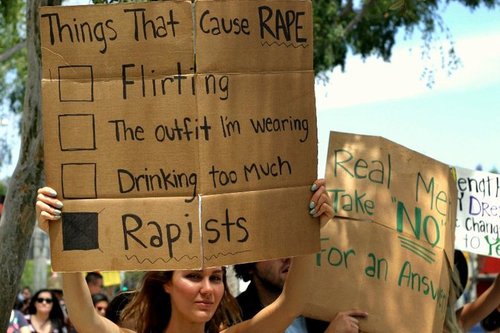 Things That Cause RAPE
Flirting
The outfit I'm wearing
Drinking too Much
Rapists
Real Me
Take "NO"
For an Answ